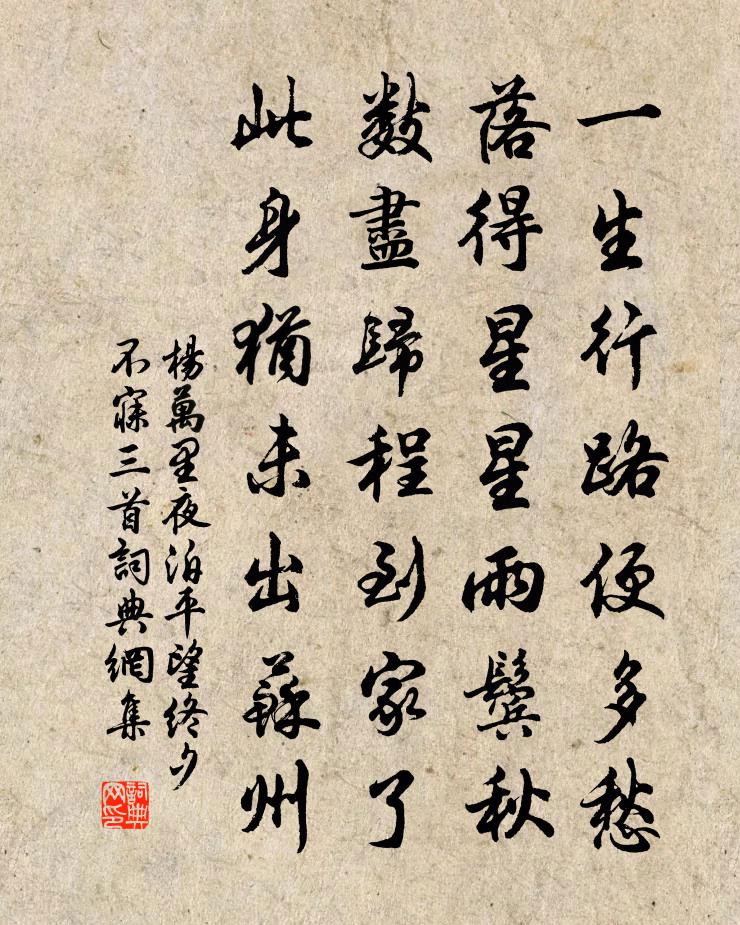 一生行路便多愁
落得星星兩鬢秋
數盡歸程到家了
此身猶未出蘇州
楊萬里夜泊平望終夕
不寐三首詞典網集
詞典
网印